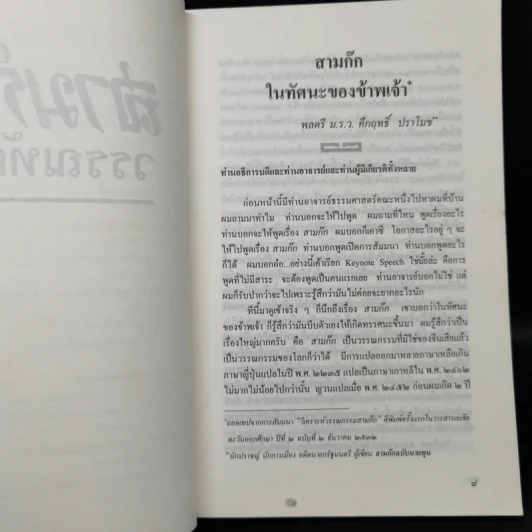 สามก๊ก
ในทัศนะของข้าพเจ้า*
พลตรี ม.ร.ว. คึกฤทธิ์ ปราโมช**
ท่านอธิการบดีและท่านอาจารย์และท่านผู้มีเกียรติทั้งหลาย
ก่อนหน้านี้มีท่านอาจารย์ธรรมศาสตร์คณะหนึ่งไปหาผมที่บ้าน
ผมถามมาทำไม ท่านบอกจะให้ไปพูด ผมถามที่ไหน พูดเรื่องอะไร
ท่านบอกจะให้พูดเรื่อง สามก๊ก ผมบอกก็เอาซี โอกาสอะไรอยู่ ๆ จะ
ให้ไปพูดเรื่อง สามก๊ก ท่านบอกพูดเปิดการสัมมนา ท่านบอกพูดอะไร
ก็ได้ ผมบอกอ๋อ...อย่างนี้เค้าเรียก Keynote Speech ใช่มั้ยล่ะ คือการ
พูดที่ไม่มีสาระ จะต้องพูดเป็นคนแรกเลย ท่านอาจารย์บอกไม่ใช่ แต่
ผมก็รับปากว่าจะไปเพราะรู้สึกว่ามันไม่ค่อยจะยากอะไรนัก
ทีนี้มาดูเข้าจริง ๆ ก็นึกถึงเรื่อง สามก๊ก เขาบอกว่าในทัศนะ
ของข้าพเจ้า ก็รู้สึกว่ามันบีบตัวเองให้เกิดทรรศนะขึ้นมา ผมรู้สึกว่าเป็น
เรื่องใหญ่มากครับ คือ สามก๊ก เป็นวรรณกรรมที่มิใช่ของจีนเสียแล้ว
เป็นวรรณกรรมของโลกก็ว่าได้ มีการแปลออกมาหลายภาษาเหลือเกิน
ภาษาญี่ปุ่นแปลในปี พ.ศ. ๒๒๓๕ แปลเป็นภาษาเกาหลีใน พ.ศ. ๒๔๐๒
ไม่มากไม่น้อยไปกว่านั้น ญวนแปลเมื่อ พ.ศ. ๒๔๕๒ ก่อนผมเกิด ๒ ปี
*ถอดเทปจากการสัมมนา "วิเคราะห์วรรณกรรมสามก๊ก" ตีพิมพ์ครั้งแรกในวารสารเอเชีย
ตะวันออกศึกษา ปีที่ ๒ ฉบับที่ ๒ ธันวาคม ๒๕๓๒
**นักปราชญ์ นักการเมือง อดีตนายกรัฐมนตรี ผู้เขียน สามก๊กฉบับนายทุน
๙